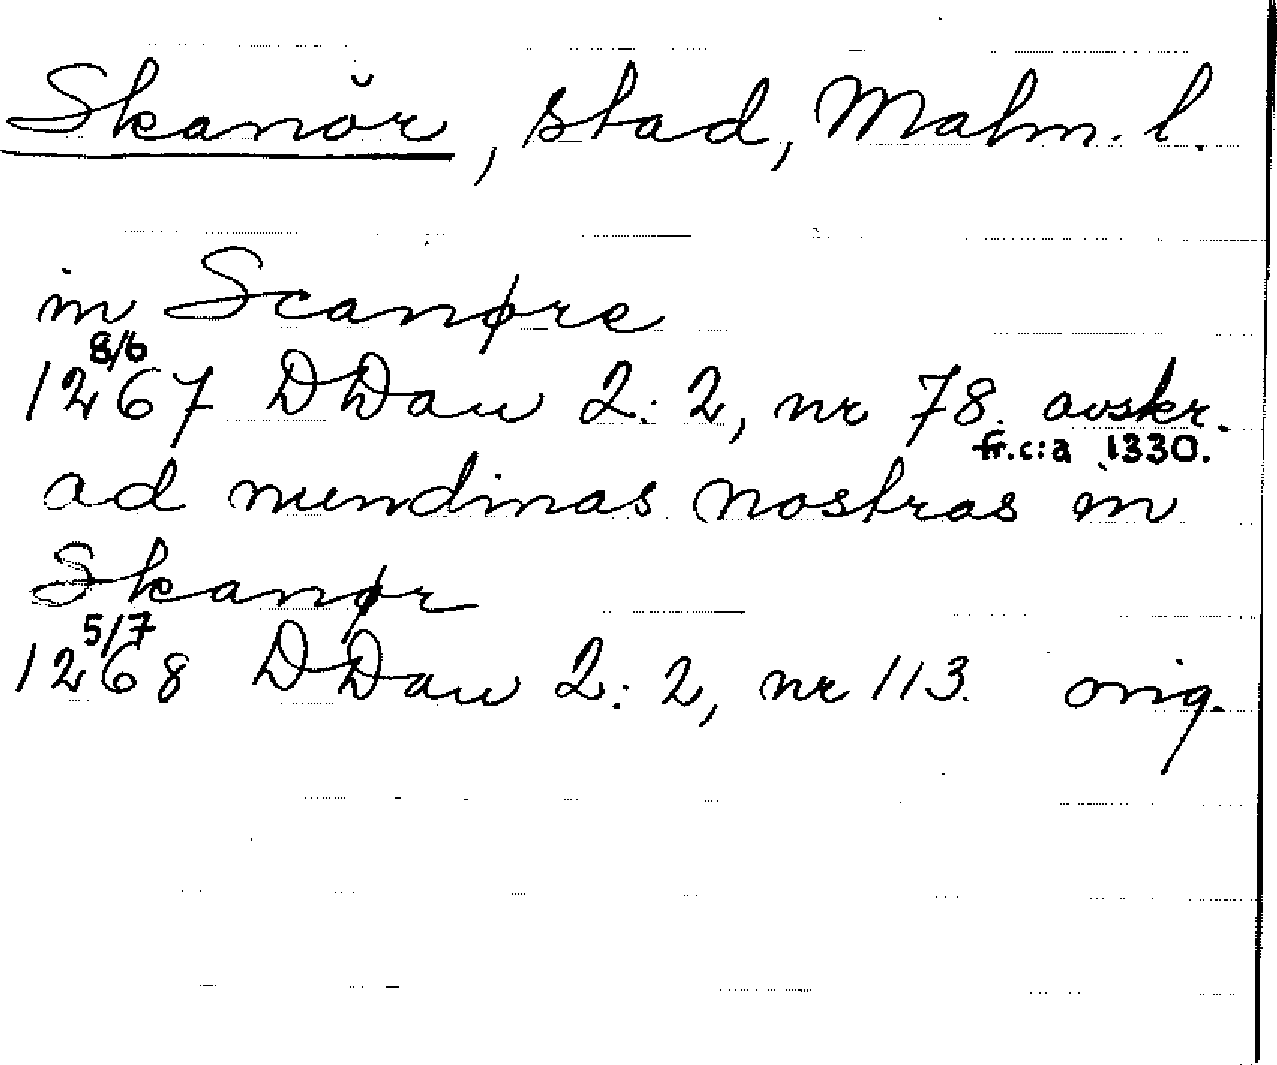 Skanör, stad, Malm. l.
in Scanøre
8/6
1267 DDan 2:2, nr 78. avskr.
fr.c:a 1330.
ad nundinas nostras in
Skanør
5/7
1268 DDan 2:2, nr 113. orig.